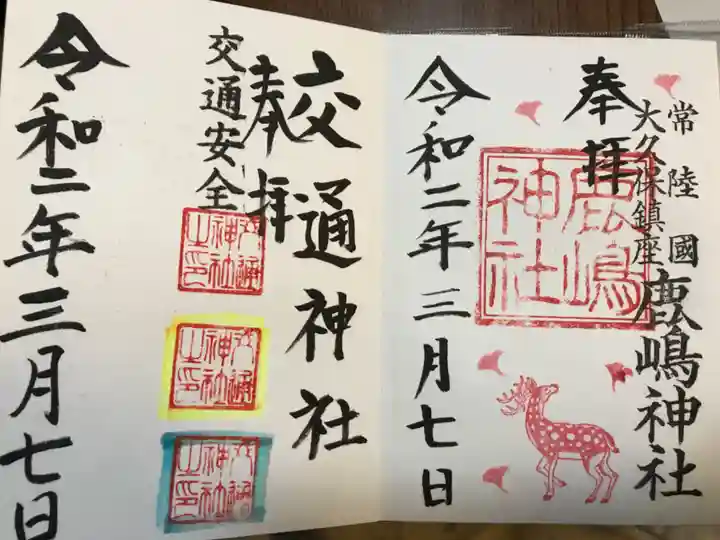 奉拝
常陸國
大久保鎮座
鹿嶋神社
鹿嶋
神社
令和二年三月七日
交通神社
奉拝
交通安全
交通
神社
之印
交通
神社
之印
交通
神社
之印
令和二年三月七日